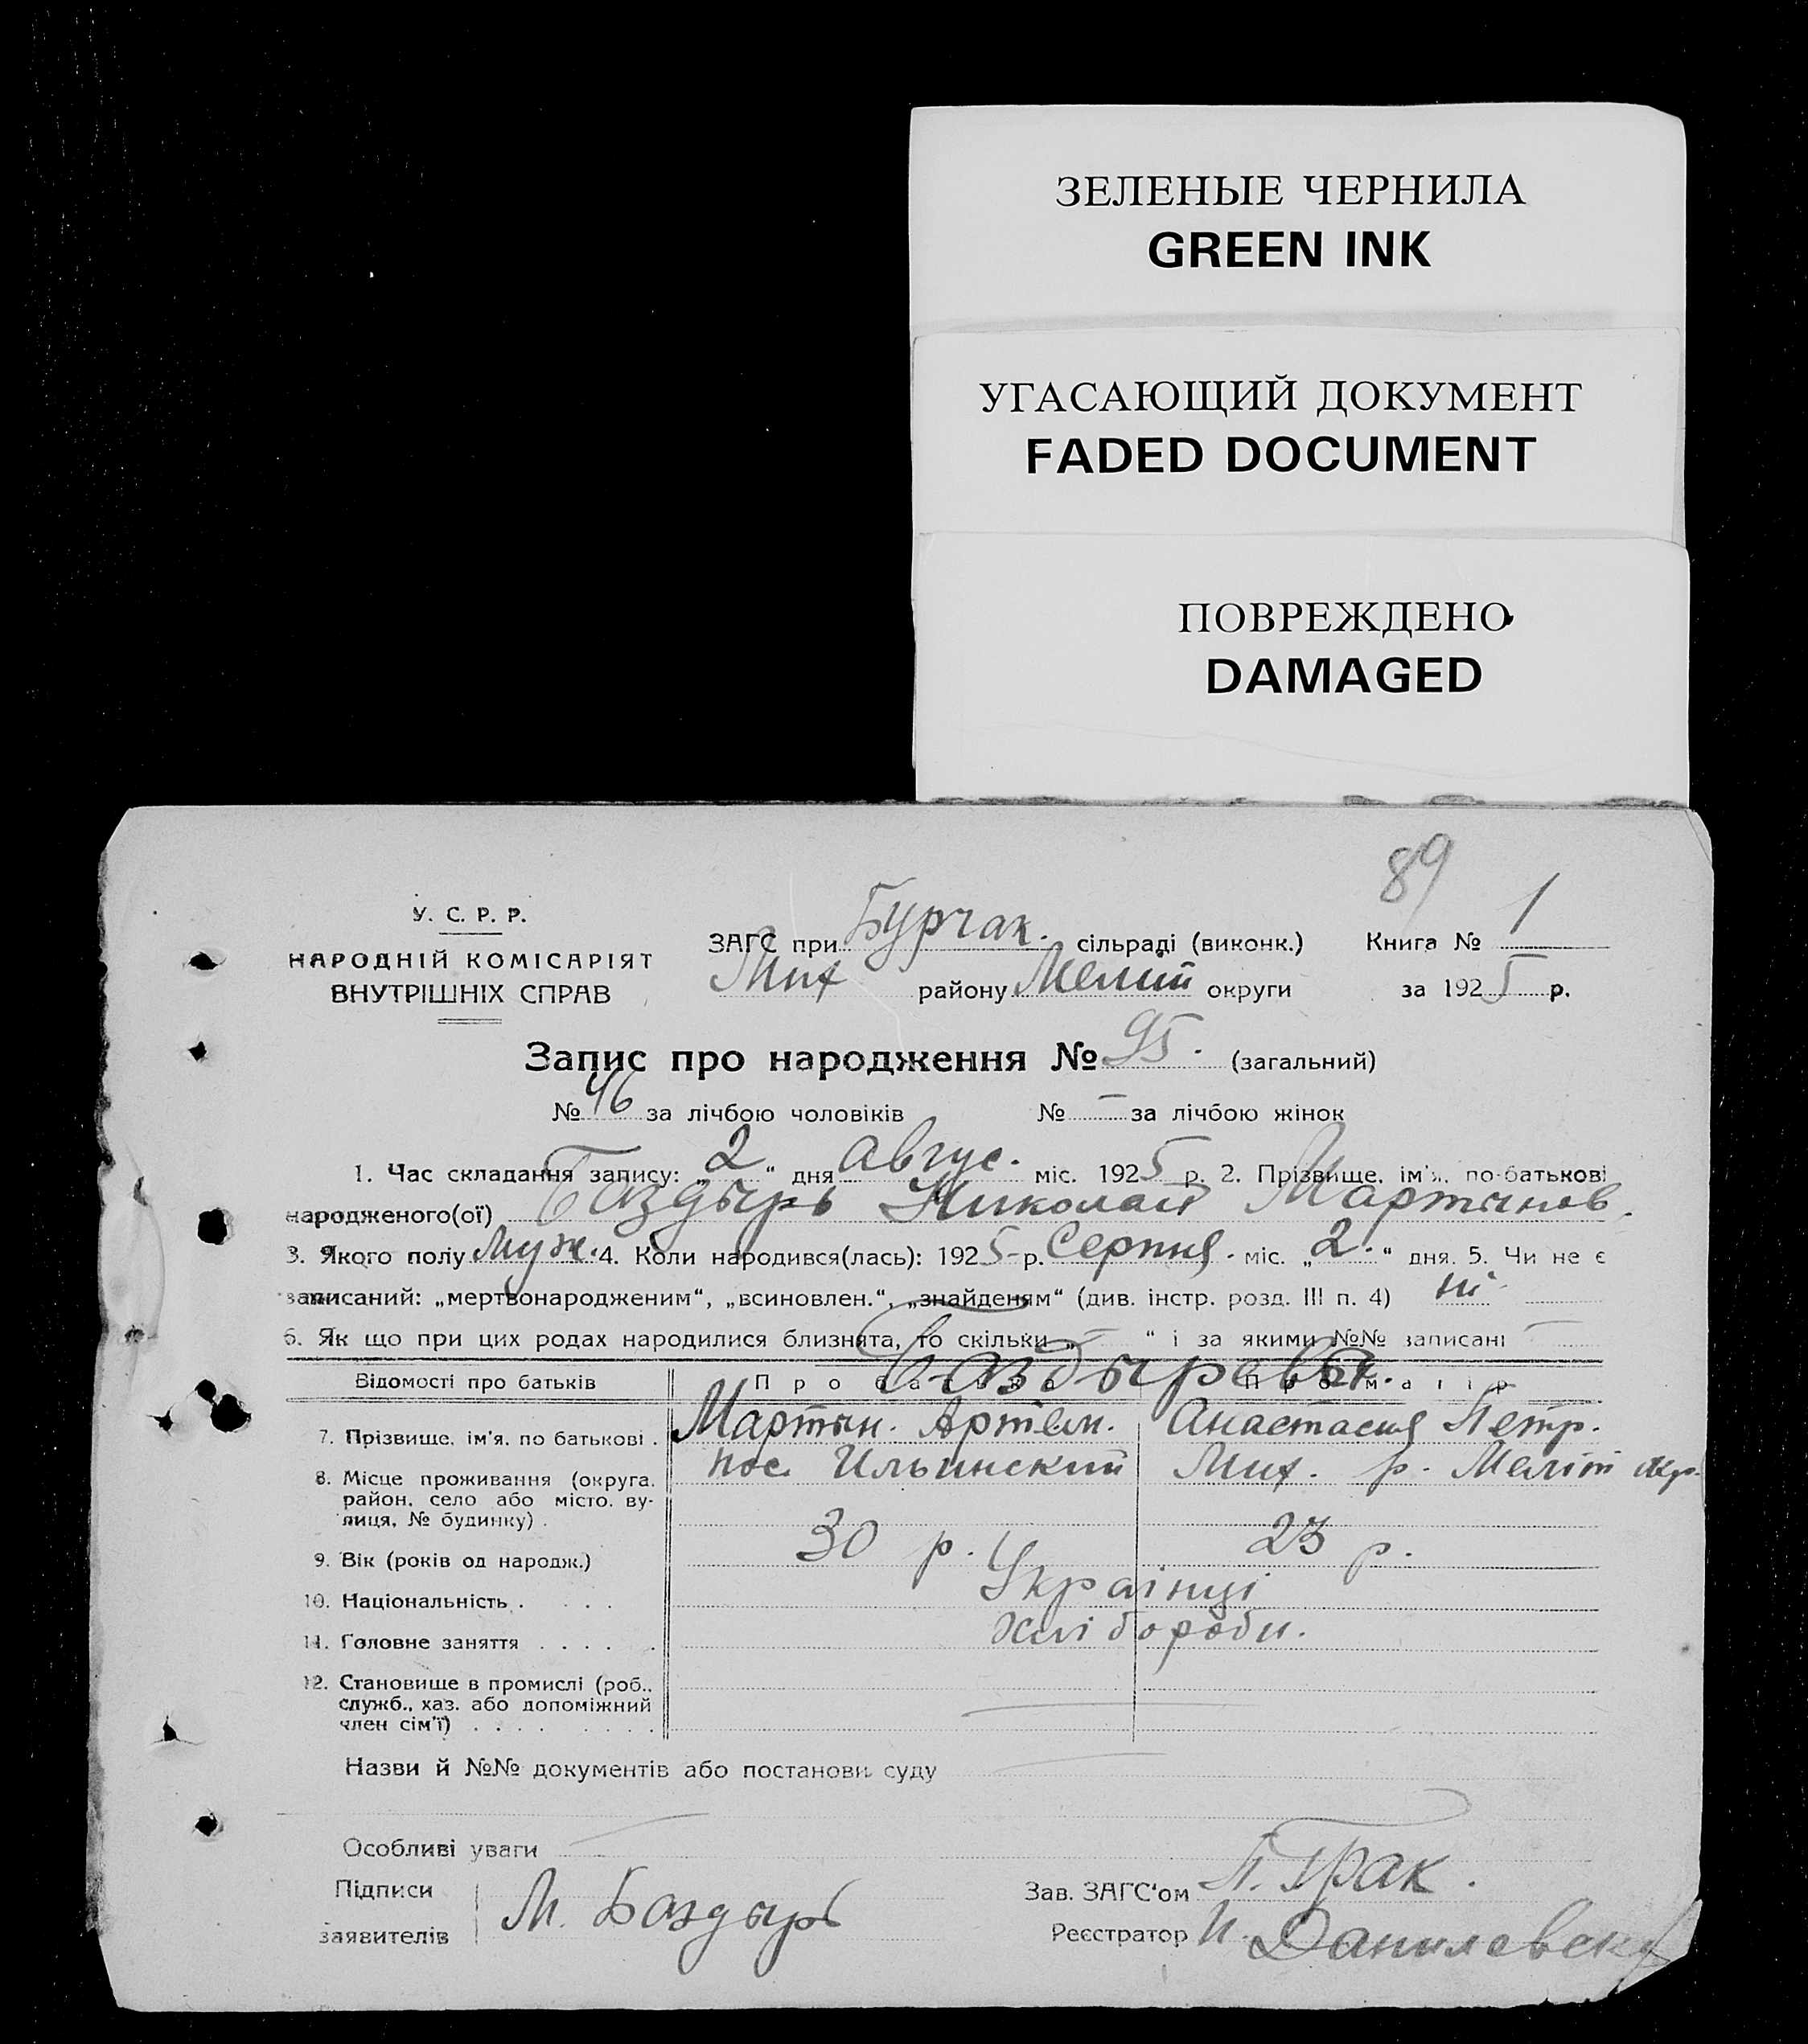 ЗЕЛЕНЫЕ ЧЕРНИЛА
GREEN INK
УГАСАЮЩИЙ ДОКУМЕНТ
FADED DOCUMENT
ПОВРЕЖДЕНО
DAMAGED
89
У. С. Р. Р.
НАРОДНІЙ КОМІСАРІЯТ
ВНУТРІШНІХ СПРАВ
ЗАГС при Бурчак. сільраді (виконк.) Книга № 1
Мих району Меліт округи за 1925 р.
Запис про народження № 95. (загальний)
№ 46 за лічбою чоловіків № — за лічбою жінок
1. Час складання запису: „2“ дня Авгус. міс. 1925 р. 2. Прізвище, ім'я, по-батькові
народженого(ої) Баздырь Николай Мартынов.
3. Якого полу Муж. 4. Коли народився(лась): 1925 р. Серпня. міс. „2.“ дня. 5. Чи не є
записаний: „мертвонародженим“, „всиновлен.“, „знайденям“ (див. інстр. розд. III п. 4) ні
6. Як що при цих родах народилися близнята, то скільки „—“ і за якими №№ записані —
Відомості про батьків Про батька Про матір
Баздыревы.
7. Прізвище, ім'я, по батькові . Мартын. Артем. Анастасия Петр.
8. Місце проживання (округа, район, село або місто, ву-
лиця, № будинку) . пос. Ильинский Мих. р. Меліт окр.
9. Вік (років од народж.) 30 р. 23 р.
10. Національність . . . . Українці
11. Головне заняття . . . . . Хлібороби.
12. Становище в промислі (роб.,
служб., хаз. або допоміжний
член сім'ї) . . . . . . . .
Назви й №№ документів або постанови суду
Особливі уваги
Підписи
заявителів М. Баздырь
Зав. ЗАГС'ом
Реєстратор И. Данилевск